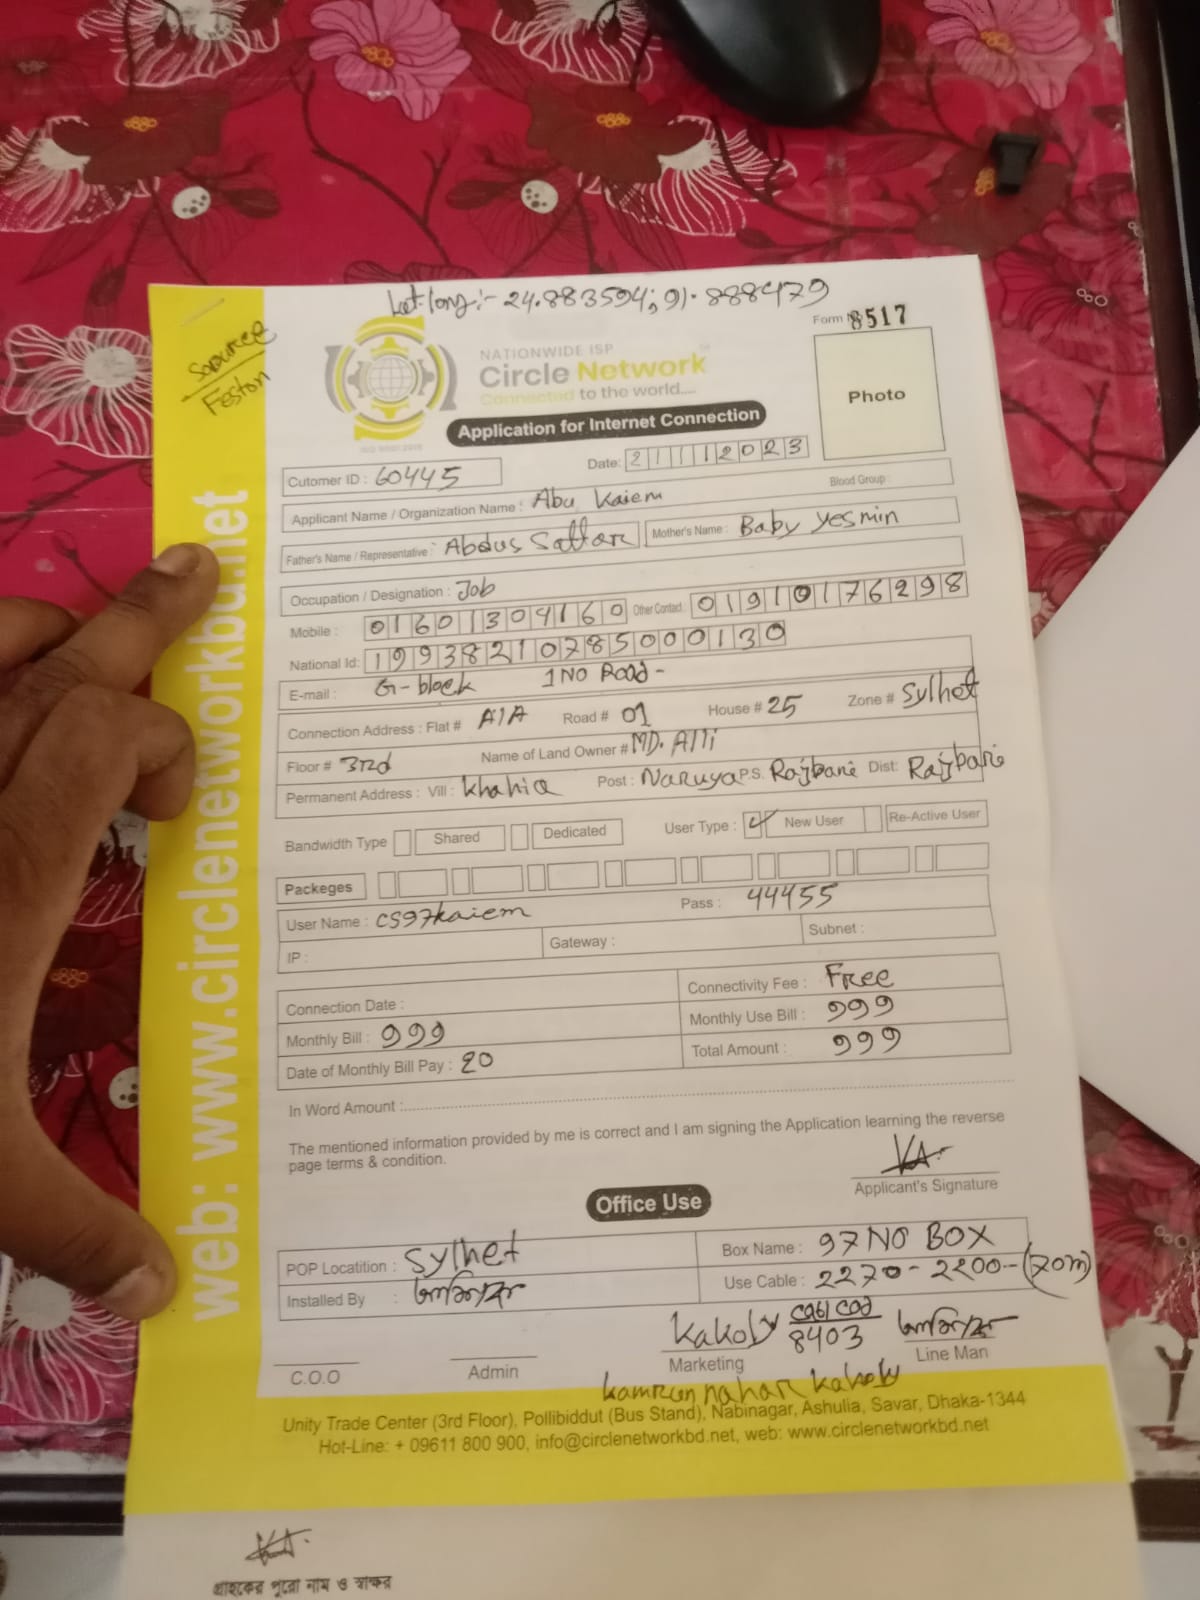 Lat. long:- 24.883594; 91.888479
Source
Feston
Form No 8517
NATIONWIDE ISP
Circle Network
Connected to the world....
ISO 9001:2015
Photo
Application for Internet Connection
Cutomer ID : 60445
Date: 21112023
Applicant Name / Organization Name : Abu Kaiem
Blood Group :
Father's Name / Representative : Abdus Sattar Mother's Name : Baby Yesmin
Occupation / Designation : Job
Mobile : 01601304160 Other Contact : 01910176298
National Id: 19938210785000130
E-mail : G-block 1NO Road-
Connection Address : Flat # A1A Road # 01 House # 25 Zone # Sylhet
Floor # 3rd Name of Land Owner # MD. Alli
Permanent Address : Vill : Khahia Post : Naruya P.S. Rajbari Dist: Rajbari
Bandwidth Type Shared Dedicated User Type : New User Re-Active User
Packeges
User Name : cs97kaiem Pass : 44455
IP : Gateway : Subnet :
Connection Date : Connectivity Fee : Free
Monthly Bill : 999 Monthly Use Bill : 999
Date of Monthly Bill Pay : 20 Total Amount : 999
In Word Amount :
The mentioned information provided by me is correct and I am signing the Application learning the reverse
page terms & condition.
KA.
Applicant's Signature
Office Use
POP Locatition : Sylhet Box Name : 97 NO BOX
Installed By : Use Cable : 2270-2200-(70m)
Kakoly 8403
C.O.O Admin Marketing Line Man
kamrun nahar kakoly
Unity Trade Center (3rd Floor), Pollibiddut (Bus Stand), Nabinagar, Ashulia, Savar, Dhaka-1344
Hot-Line: + 09611 800 900, info@circlenetworkbd.net, web: www.circlenetworkbd.net
web: www.circlenetworkbd.net
KA.
গ্রাহকের পুরো নাম ও স্বাক্ষর